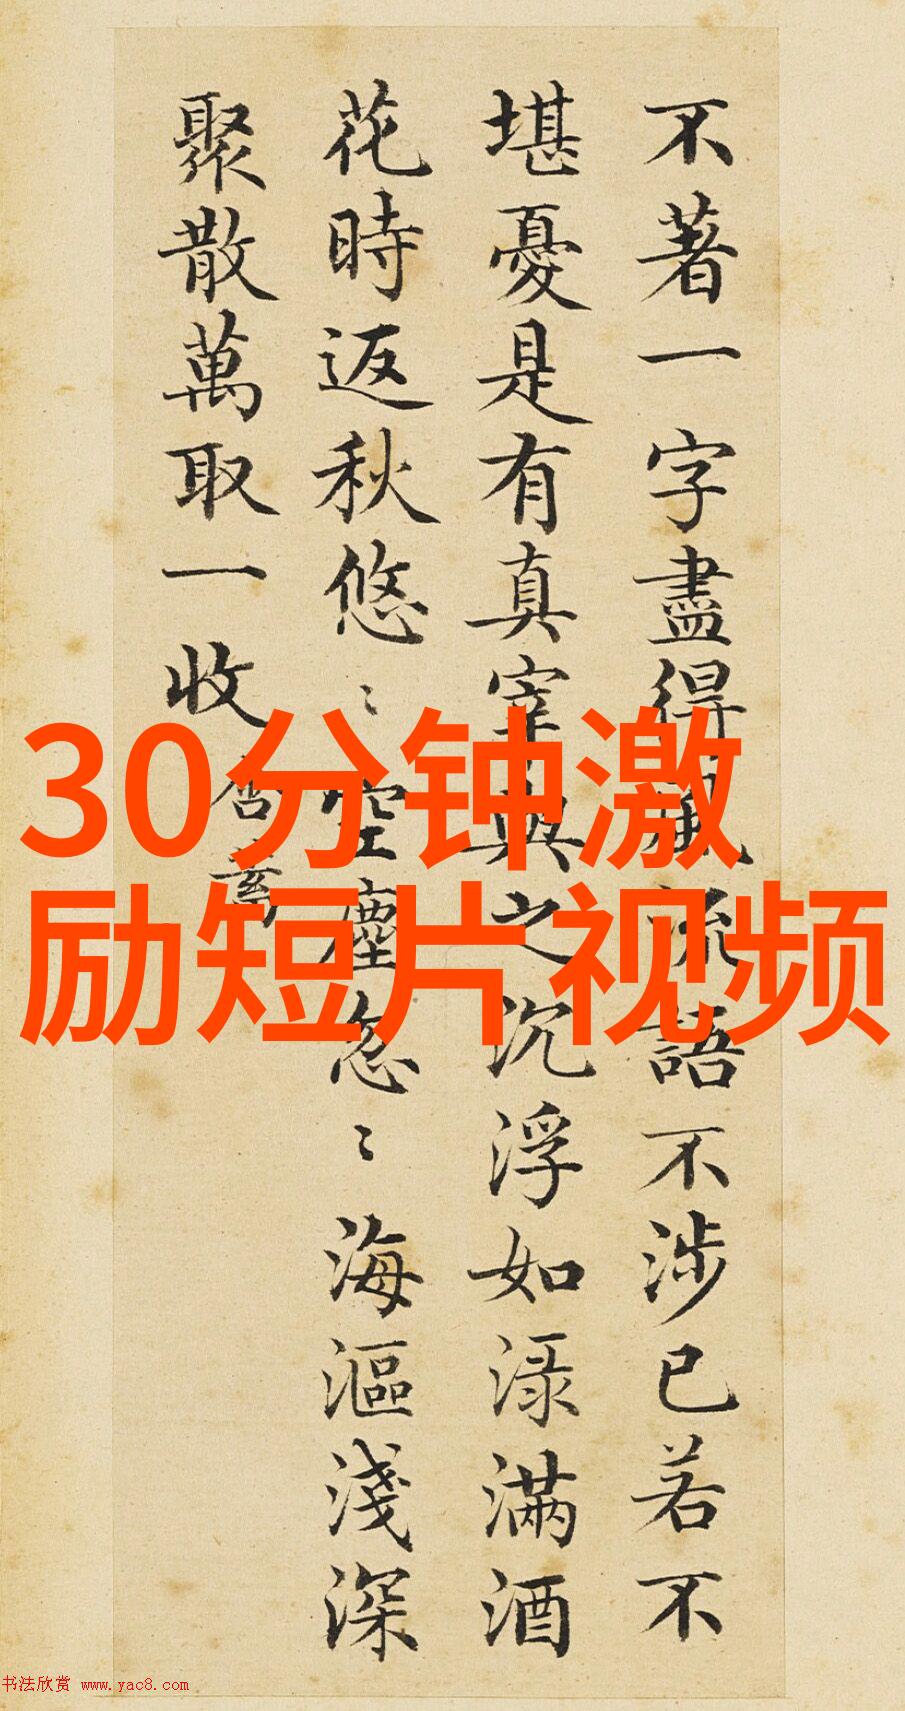 不著一字盡得風流語不涉已若不
堪憂是有真宰與之沉浮如淥滿酒
花時返秋悠〻空塵忽〻海漚淺深
聚散萬取一收
30分钟激
励短片视频
书法欣赏 www.yac8.com